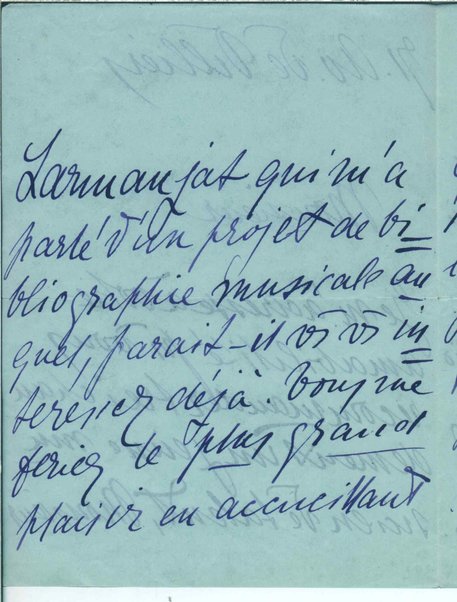 Larmanjat qui m'a
parlé d'un projet de bi=
bliographie musicale au
quel, parait-il vs vs in=
téresiez déjà. Vous me
feriez le plus grand
plaisir en accueillant